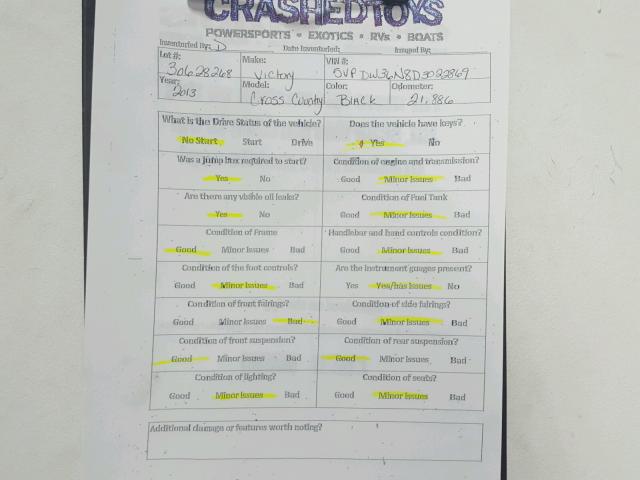 CRASHEDTOYS
POWERSPORTS • EXOTICS • RVs • BOATS
Inventoried By: D Date Inventoried: Imaged By:
Lot #: Make: VIN #:
30628268 Victory 5VPDW36N8D3022869
Year: Model: Color: Odometer:
2013 Cross Country Black 21,886
What is the Drive Status of the vehicle? Does the vehicle have keys?
No Start Start Drive Yes No
Was a jump box required to start? Condition of engine and transmission?
Yes No Good Minor Issues Bad
Are there any visible oil leaks? Condition of Fuel Tank
Yes No Good Minor Issues Bad
Condition of Frame Handlebar and hand controls condition?
Good Minor Issues Bad Good Minor Issues Bad
Condition of the foot controls? Are the instrument guages present?
Good Minor Issues Bad Yes Yes/has Issues No
Condition of front fairings? Condition of side fairings?
Good Minor Issues Bad Good Minor Issues Bad
Condition of front suspension? Condition of rear suspension?
Good Minor Issues Bad Good Minor Issues Bad
Condition of lighting? Condition of seats?
Good Minor Issues Bad Good Minor Issues Bad
Additional damage or features worth noting?